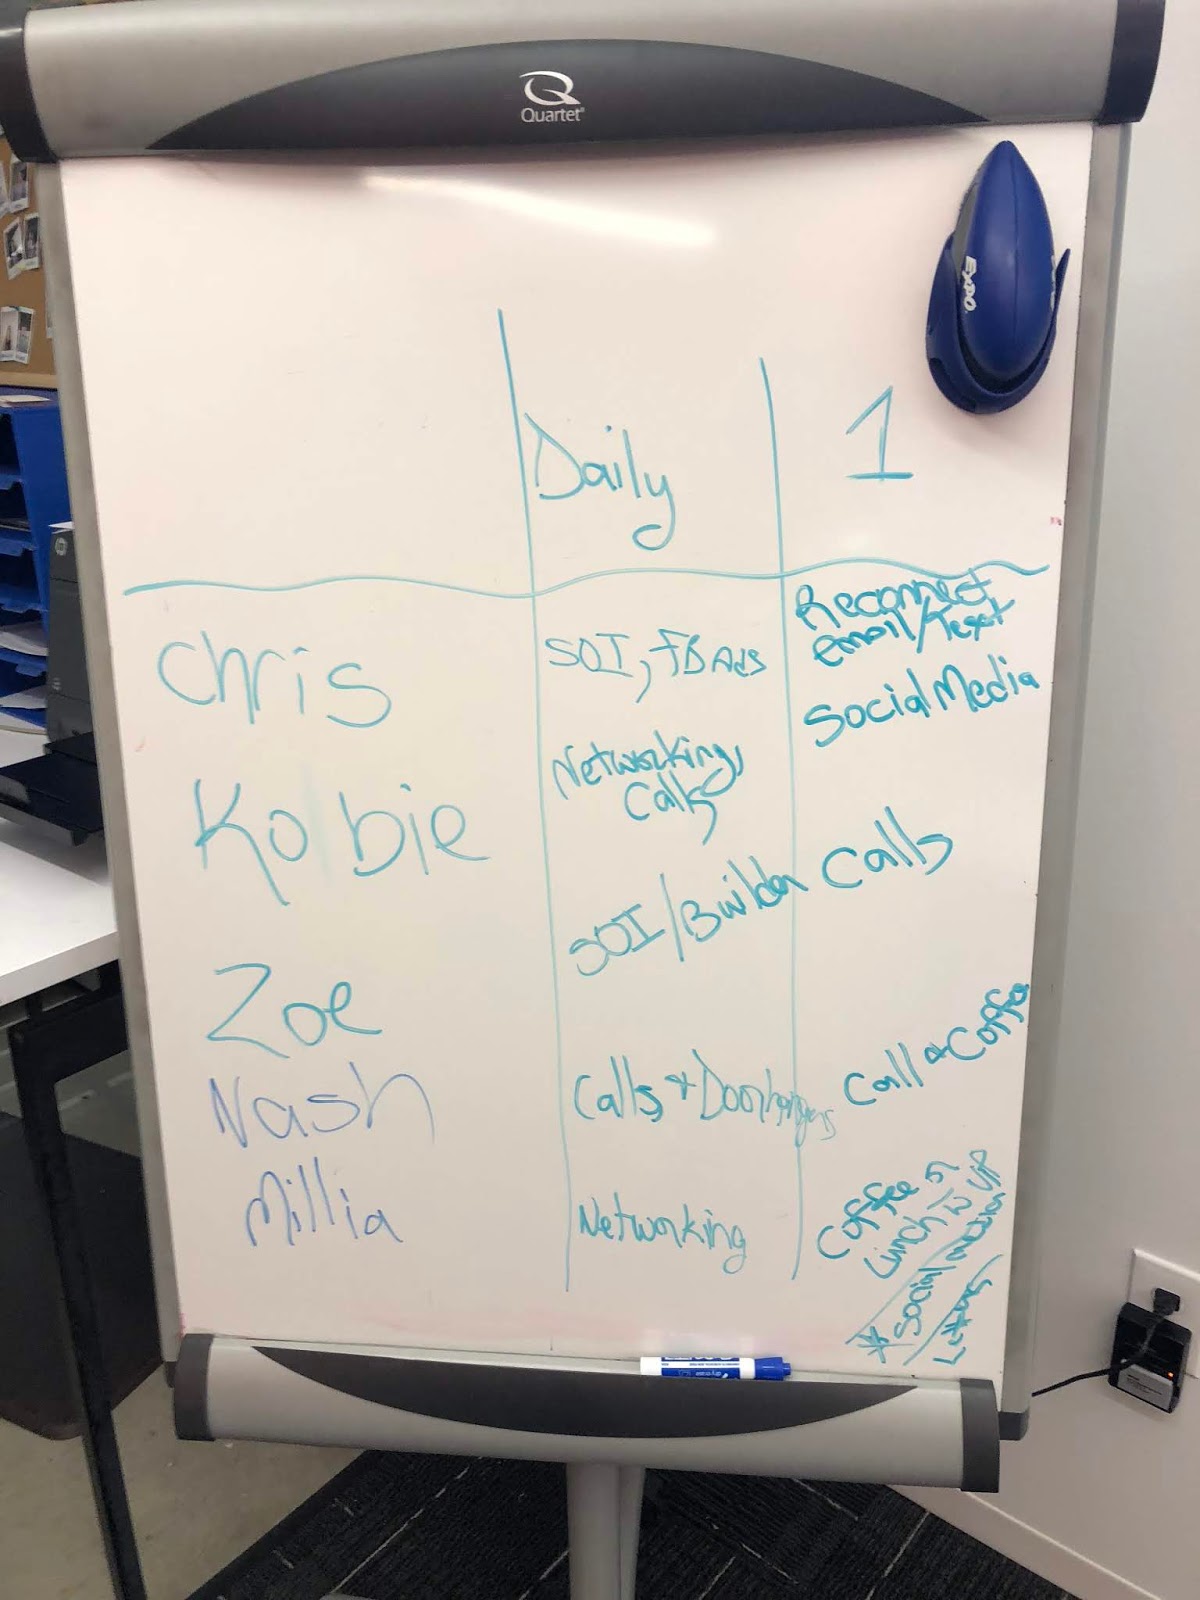 Quartet
EXPO
Daily
1
Chris
SOI, FB Ads
Reconnect
email/Text
Social Media
Kolbie
Networking,
Calls
Zoe
SOI/Builder
Calls
Nash
Calls + Doorhangers
Call + Coffee
Millia
Networking
Coffee or
Lunch w VIP
* Social media
Letters
hp